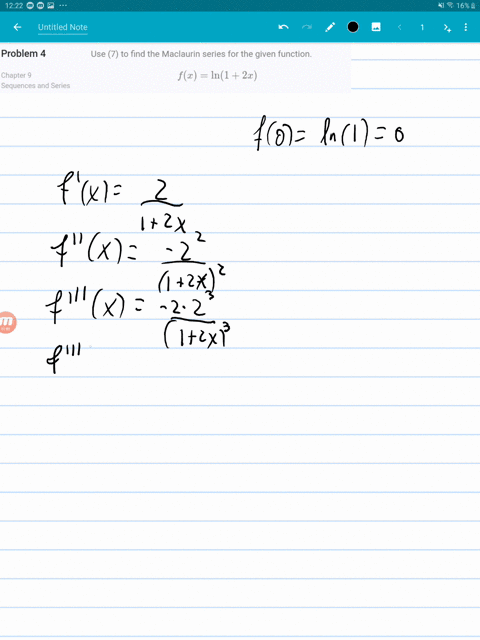 12:22 16%
Untitled Note 1
Problem 4
Use (7) to find the Maclaurin series for the given function.
Chapter 9
Sequences and Series
f(x) = ln(1 + 2x)
f(0) = ln(1) = 0
f'(x) = 2/(1+2x)
f''(x) = -2²/(1+2x)²
f'''(x) = -2·2³/(1+2x)³
f'''